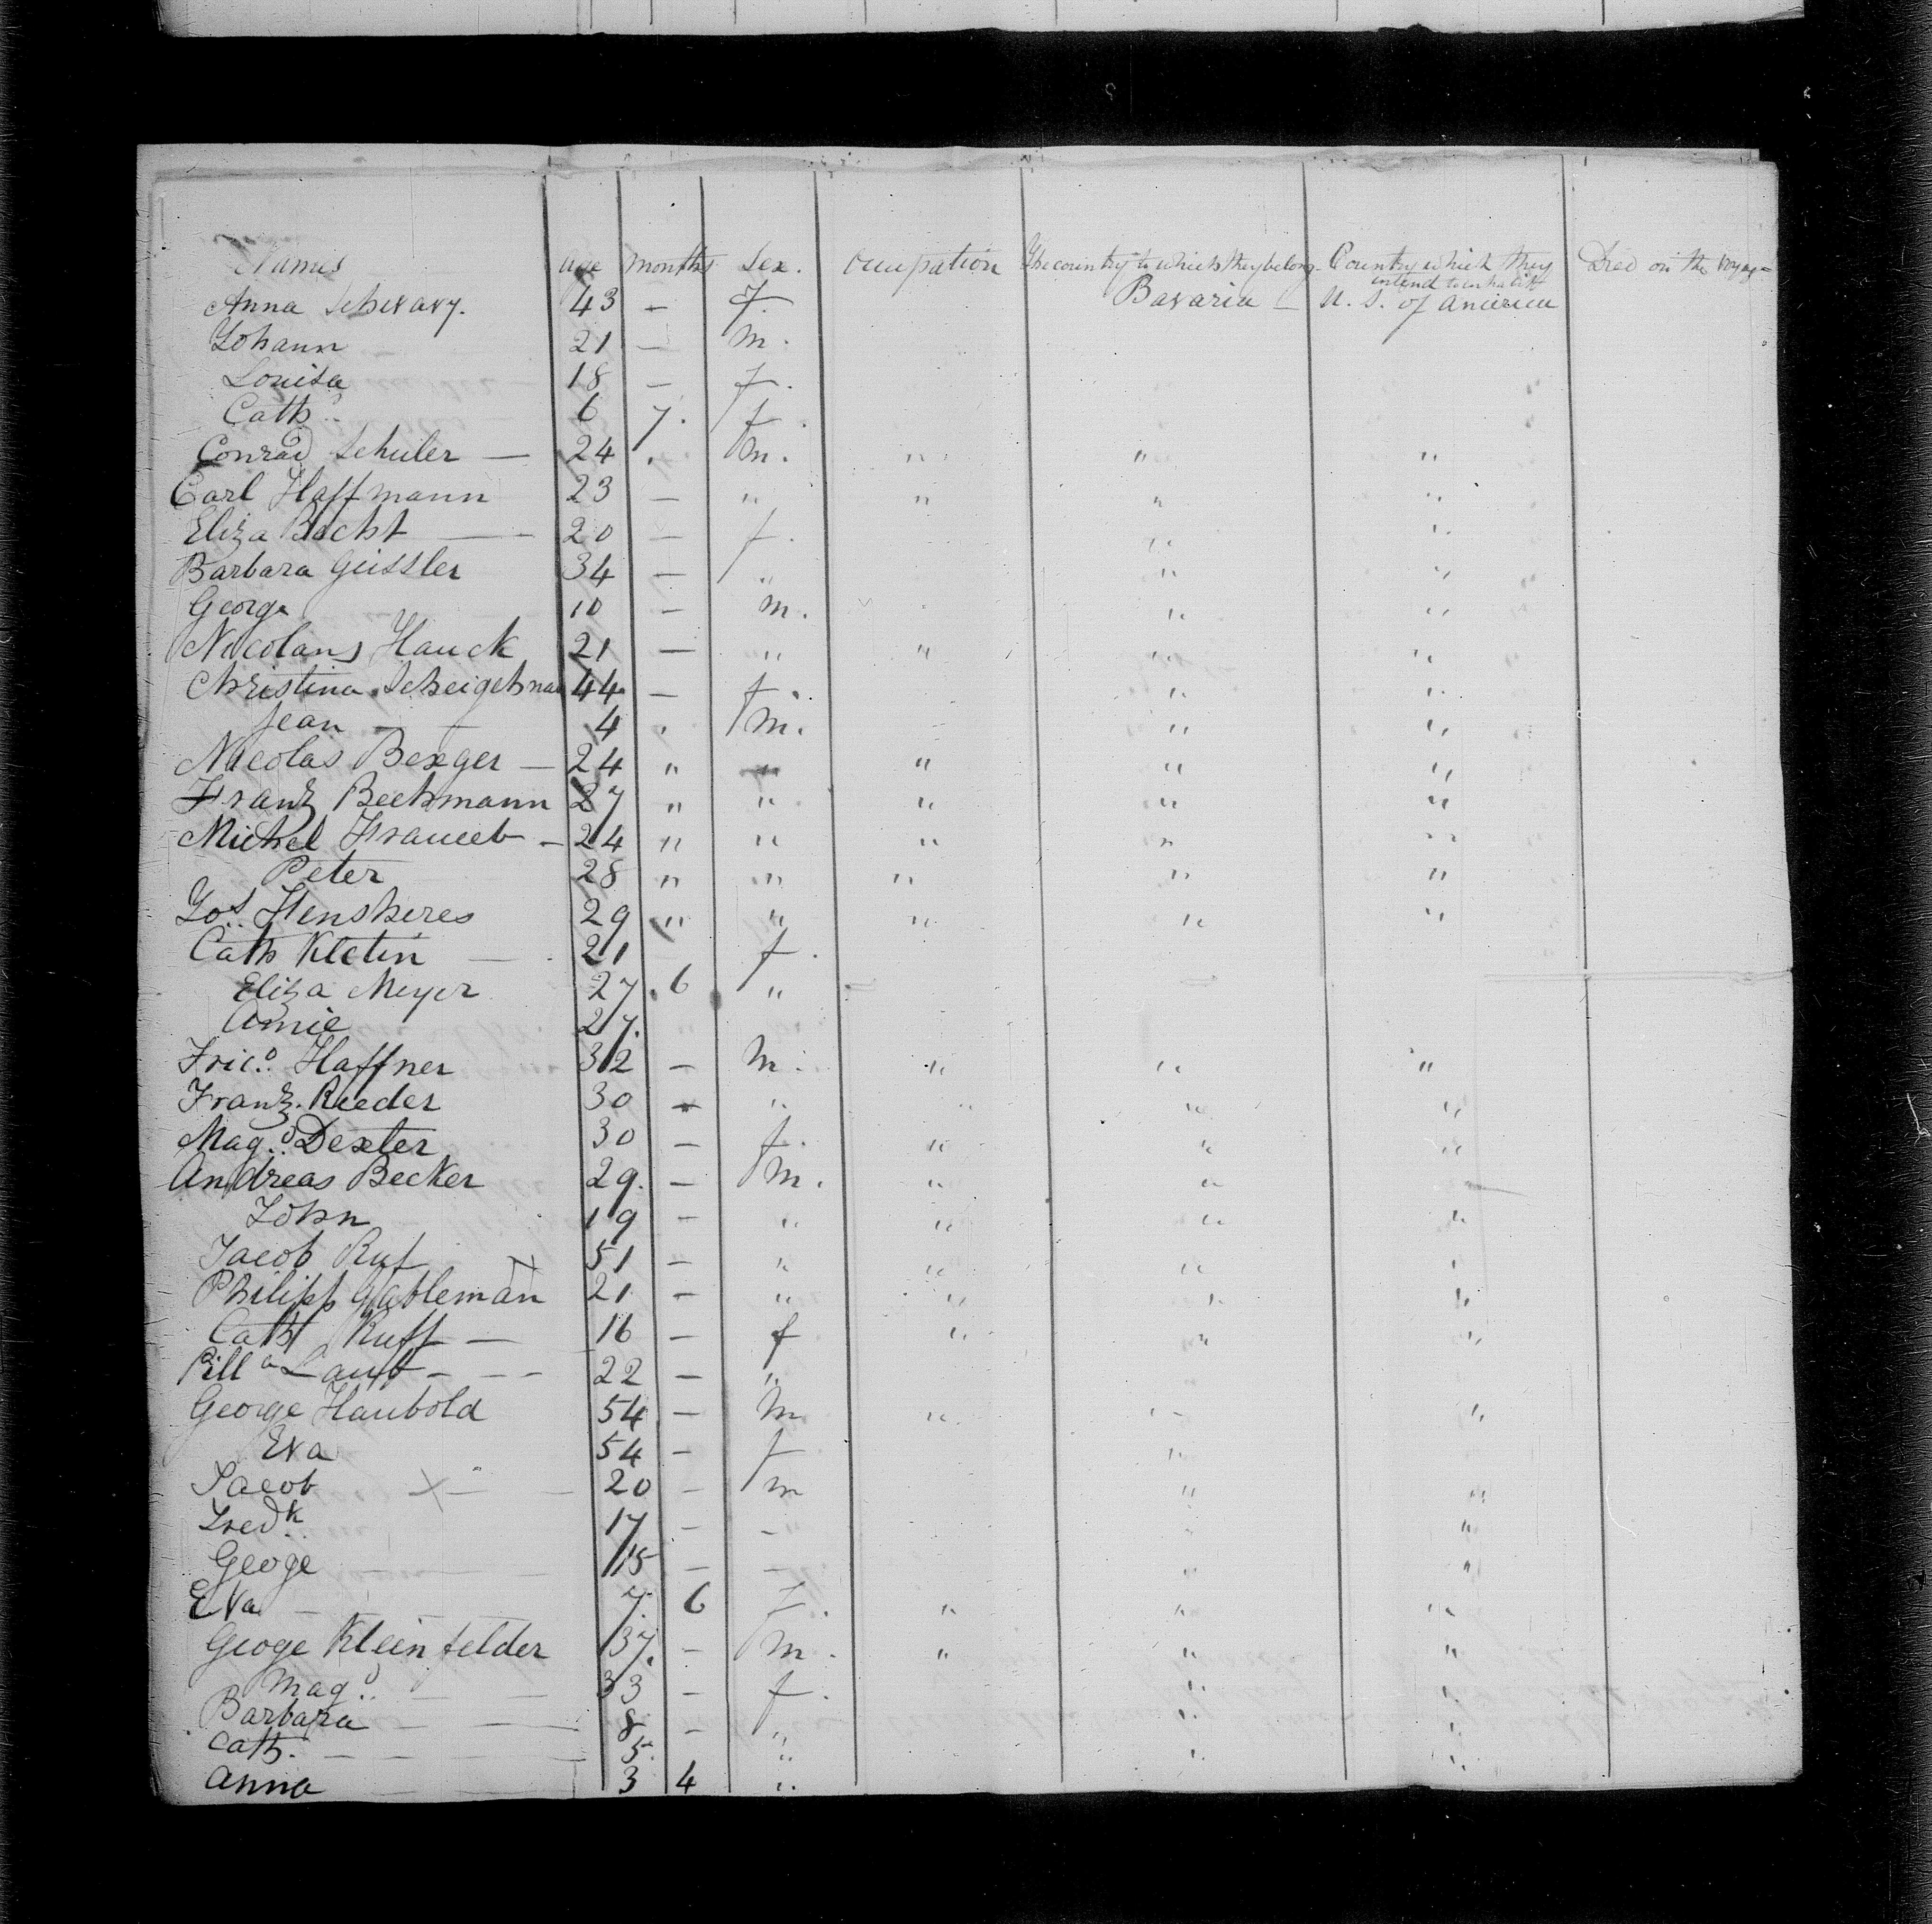 Names age months Sex. occupation The country to which they belong Country which they intend to inhabitt Died on the voyage
Anna Schwary. 43 — f. Bavaria — U. S. of America
Johann 21 — m.
Louisa 18 — f.
Cath.. 6 7. f.
Conrad Schuler — 24 . m. " " "
Carl Haffmann 23 — " " " "
Eliza Becht — 20 — f. " "
Barbara Geissler 34 — " " "
George 10 — m. " "
Nicolaus Hauck 21 — " " " "
Christina 44 — f. " "
Jean — 4 . m. " "
Nicolas Berger — 24 " " " " "
Frantz Bechmann 27 " " " " "
Michel — 24 " " " " "
Peter 28 " " " " "
Jos. 29 " " " " "
Cath Kletin — 21 f.
Eliza Meyer 27. 6 "
Amie 27.
Haffner 32 — m. " " "
Frantz. Reeder 30 — " " " "
Mag.d Dexter 30 — f. " " "
Andreas Becker 29. — m. " " "
John 19 — " " " "
Jacob Ruf 51 — " " " "
Philipp Gableman 21 — " " " "
Cath Ruff — 16 — f " " "
Laub - - - 22 — "
George Haubold 54 — m " " "
Eva 54 — f "
Jacob X — 20 — m " "
Fredk.. 17 — - " "
Geoge 15 — - " "
Eva — 7. 6 f. " " "
Geoge Kleinfelder 37. — m. " " "
Mag.d — 33 — f. " "
Barbara — 8 — " " "
Cath. — 5. " " "
Anna — 3 4 "